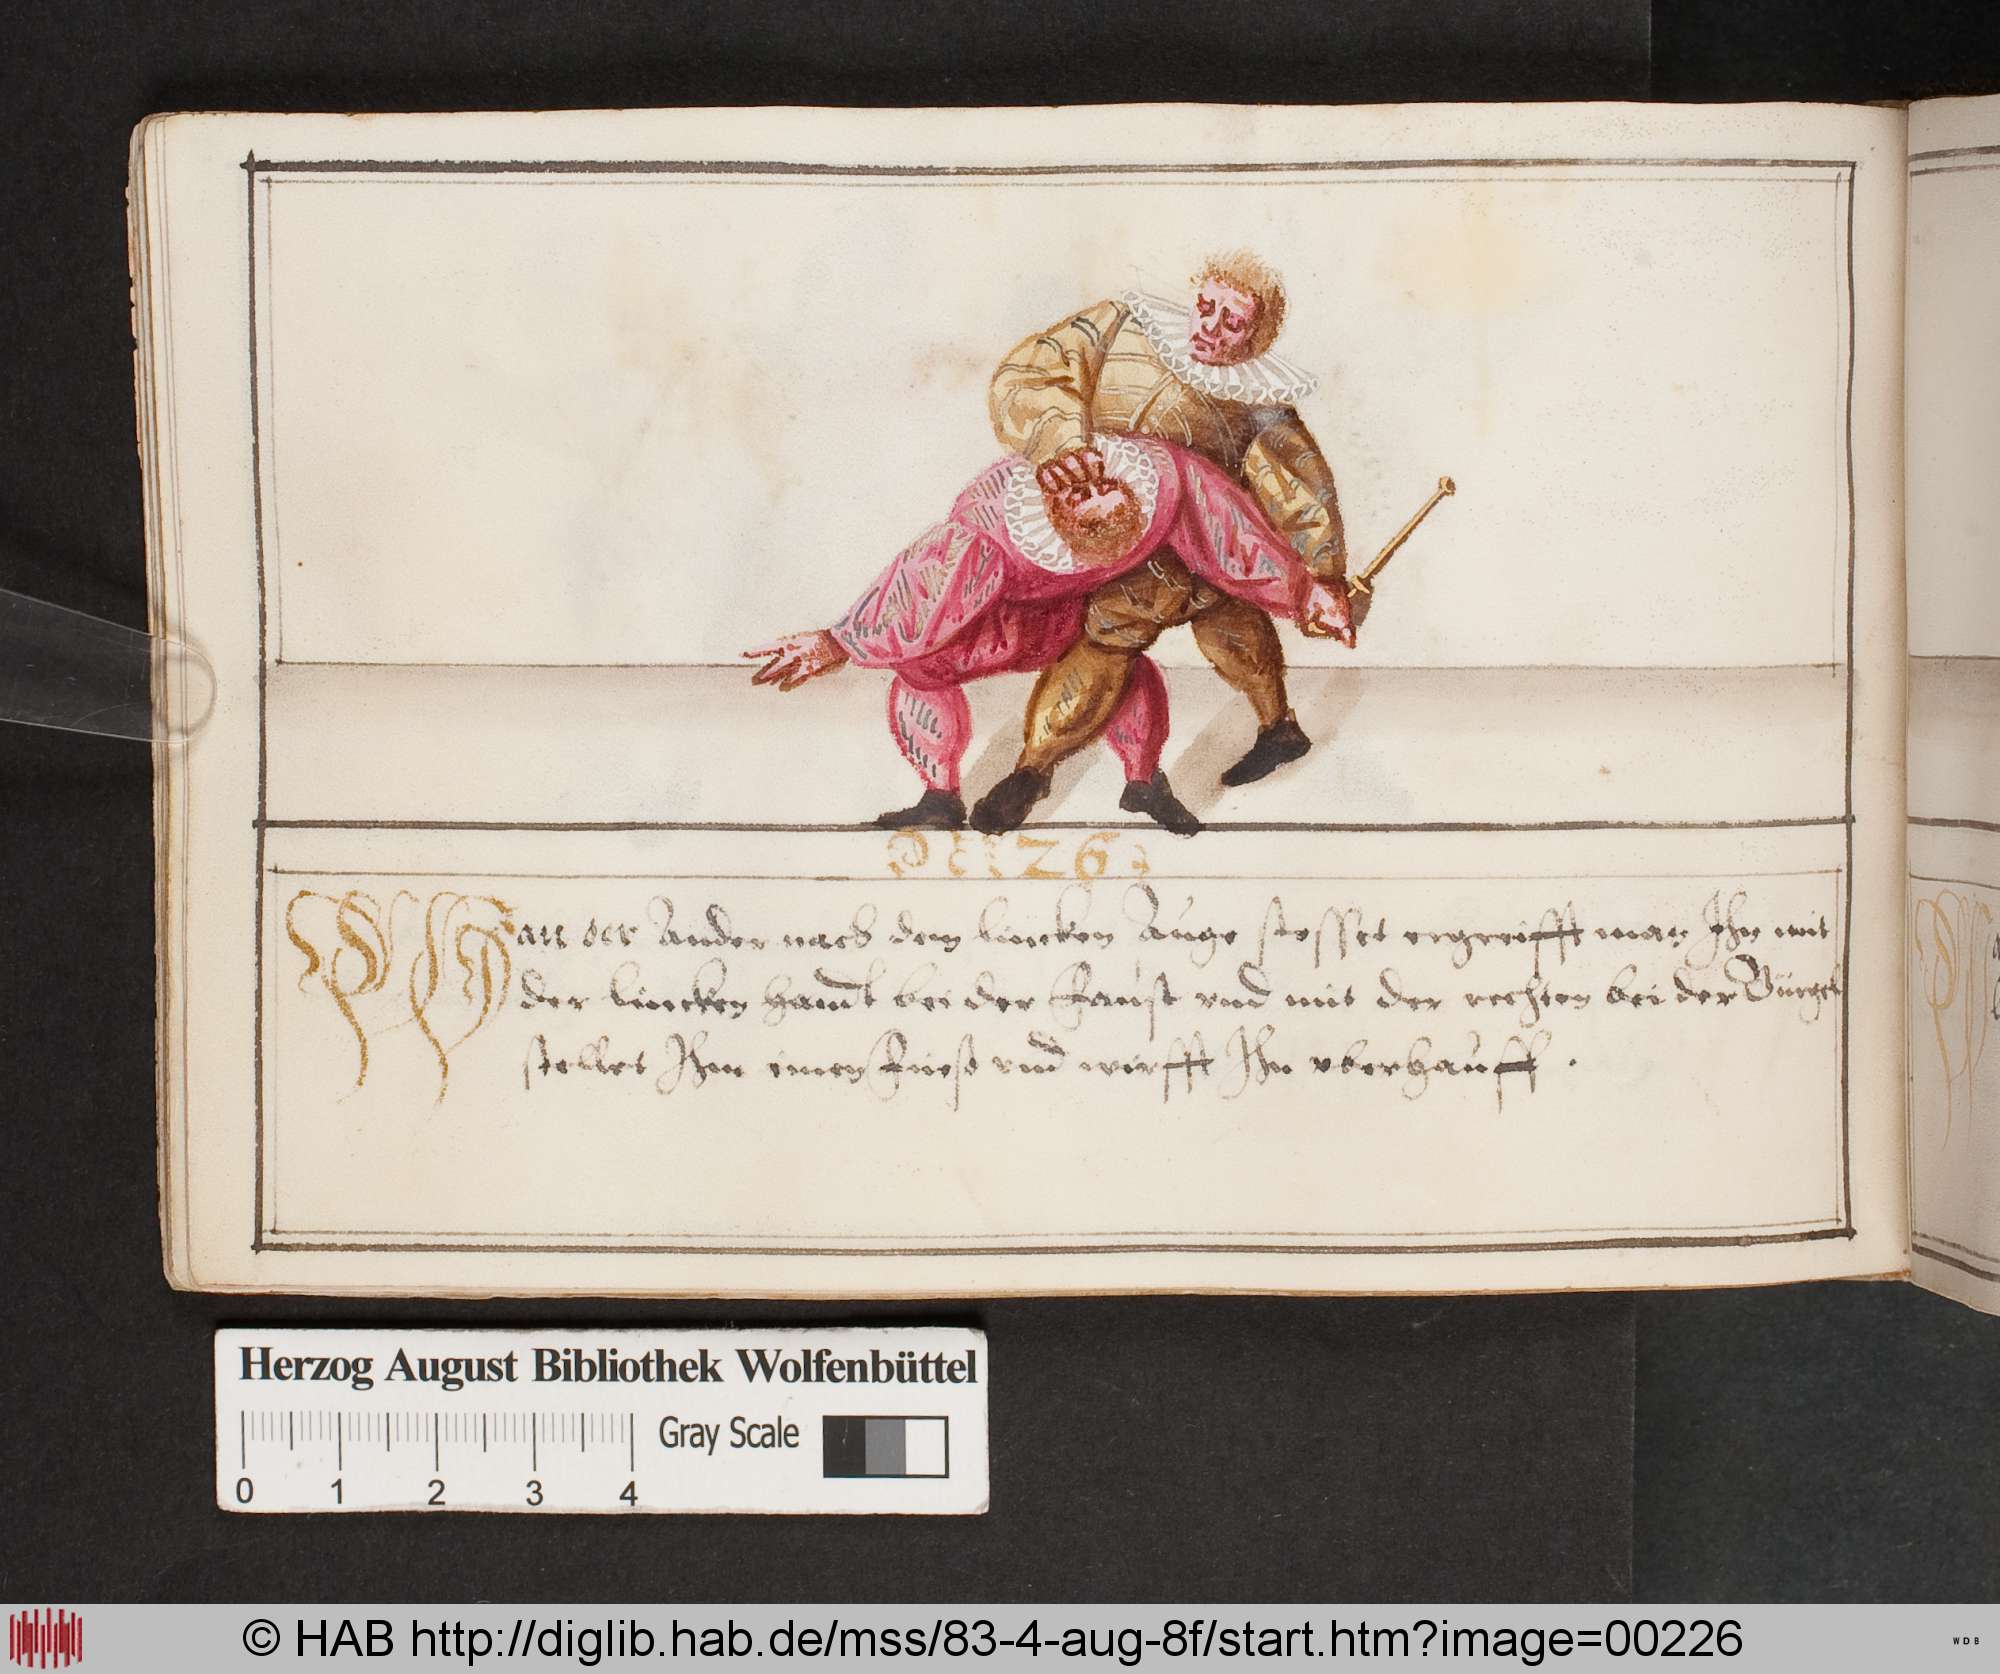 26
Wan der Ander nach dem lincken Auge stosset ergreifft man Ihn mit
der lincken handt bei der Faust vnd mit der rechten bei der Gürgel
stellet Ihm einen Fuesß vnd wirfft Ihn vberhauff .
Herzog August Bibliothek Wolfenbüttel
0 1 2 3 4
Gray Scale
© HAB http://diglib.hab.de/mss/83-4-aug-8f/start.htm?image=00226
WDB